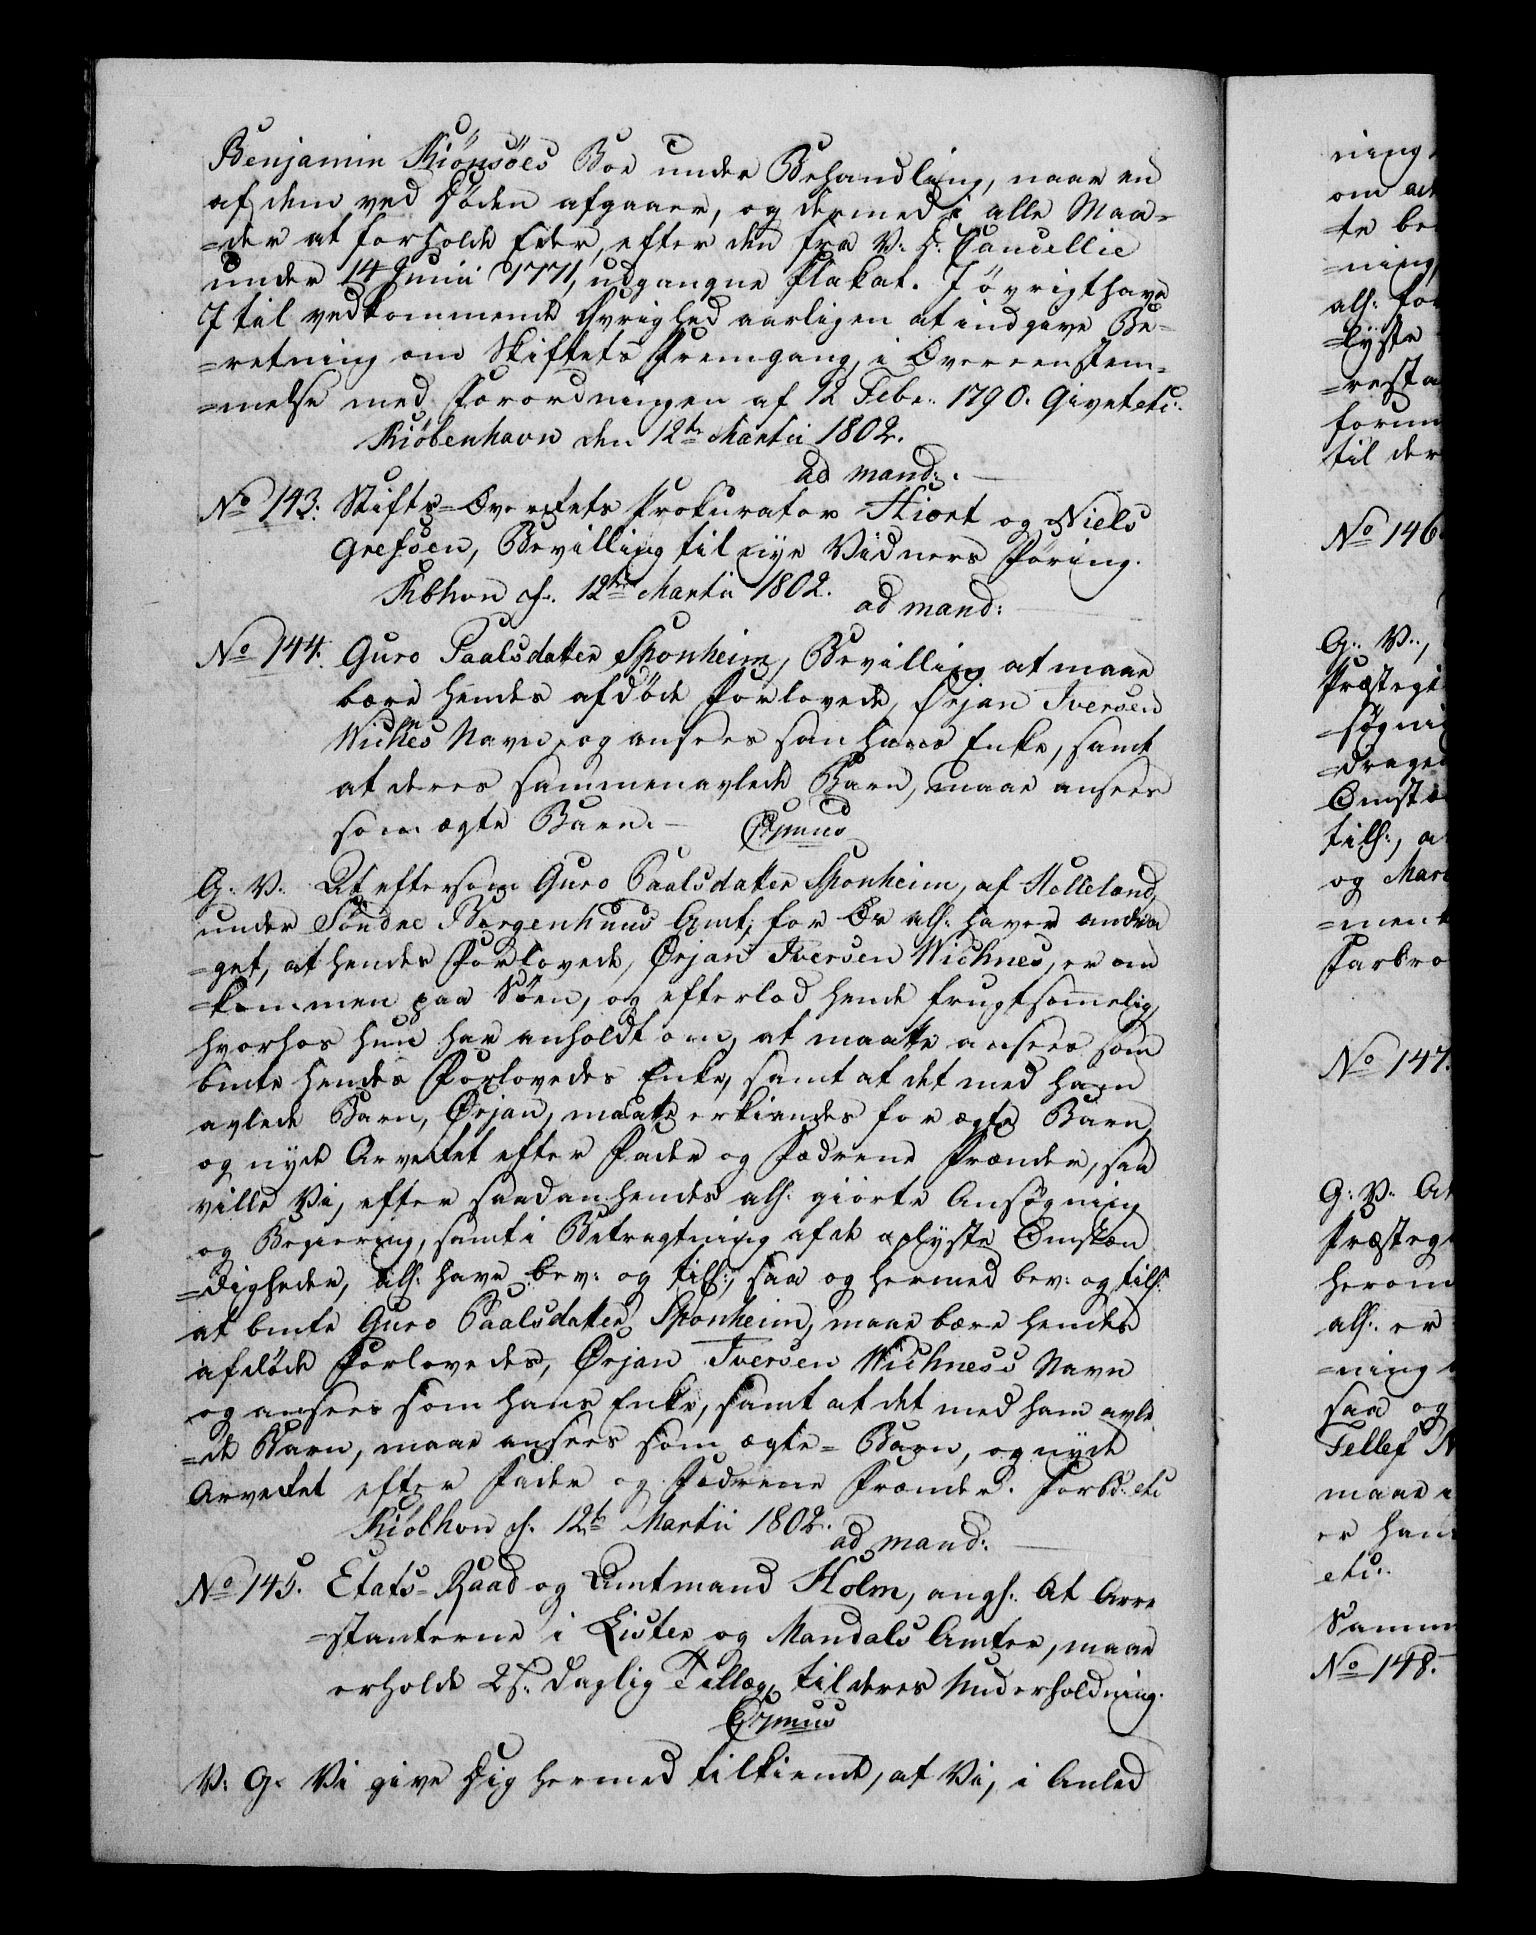 Benjamin Kiönsöes Boe under Behandling, naar en
af dem ved Döden afgaaer, og dermed i alle Maa-
=der at forholde Eder, efter den fra V. D. Cancellie
under 14 Junii 1771, udgangne Plakat. I övrigt have
I til vedkommende Øvrighed aarligen at indgive Be-
=retning om Skiftets Fremgang, i Overeenstem-
=melse med Forordningen af 12 Febr. 1790. Givet etc.
Kiöbenhavn den 12te Martii 1802.
ad mand:
No 143. Stifts-Overrettets Prokurator Hiort og Niels
Grefsen, Bevilling til nye Vidners Föring.
Kbhvn d. 12te Martii 1802.
ad mand:
No 144. Guro Paalsdatter Sponheim, Bevilling at maae
bære hendes afdöde Forlovede, Ørjan Iversen
Wichnes Navn, og ansees som hans Enke, samt
at deres sammenavlede Barn, maae ansees
som ægte Barn.
G. V. At eftersom Guro Paalsdatter Sponheim, af Helleland,
under Söndre Bergenhuus Amt, for Os alh. haver andra
=get, at hendes Forlovede, Ørjan Iversen Wichnes, er om
=kommen paa Söen, og efterlod hende frugtsommelig,
hvorhos hun har anholdt om, at maatte ansees som
bmte hendes Forlovedes Enke, samt at det med ham
avlede Barn, Ørjan, maatte erkiendes for ægte Barn,
og nyde Arveret efter Fader og Fædrene Frænder, saa
ville Vi, efter saadan hendes alh. giorte Ansøgning
og Begiering, samt i Betragtning af de oplyste Omstæn
=digheder, alh. have bev: og tilh:, saa og hermed bev: og tilh:
at bmte Guro Paalsdatter Sponheim, maae bære hendes
afdöde Forlovedes, Ørjan Iversen Wichness Navn
og ansees som hans Enke, samt at det med ham avle
=de Barn, maae ansees som ægte-Barn, og nyde
Arveret efter Fader og Fædrene Frænder. Forbd. etc
Kiöbhvn d. 12te Martii 1802.
ad mand:
No 145. Etats-Raad og Amtmand Holm, angh. At Arre
=stanterne i Lister og Mandals Amter, maae
erholde 2 s. daglig Tillæg til deres Underholdning.
V. G. Vi give Dig hermed tilkiende, at Vi, i Anled
ning
om
te be
=ning
alh. for
=lyste
=resta
forun
til der
No 146
G. V.,
Præstegi
=søgni
=drage
Omstæ
tilh:, a
og Mar
=ment
Farbro
No 147.
G. V. At
Præsteg
herom
alh. er
=ning
saa og
Tellef N
maae
er han
etc.
Samm
No 148.